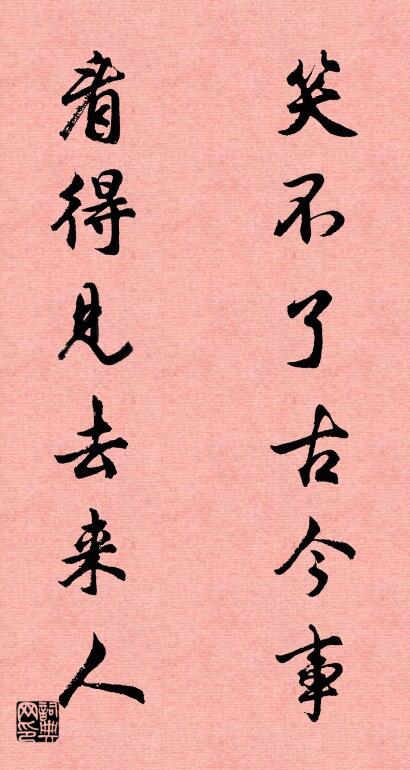 笑不了古今事
看得见去来人
詞典網印